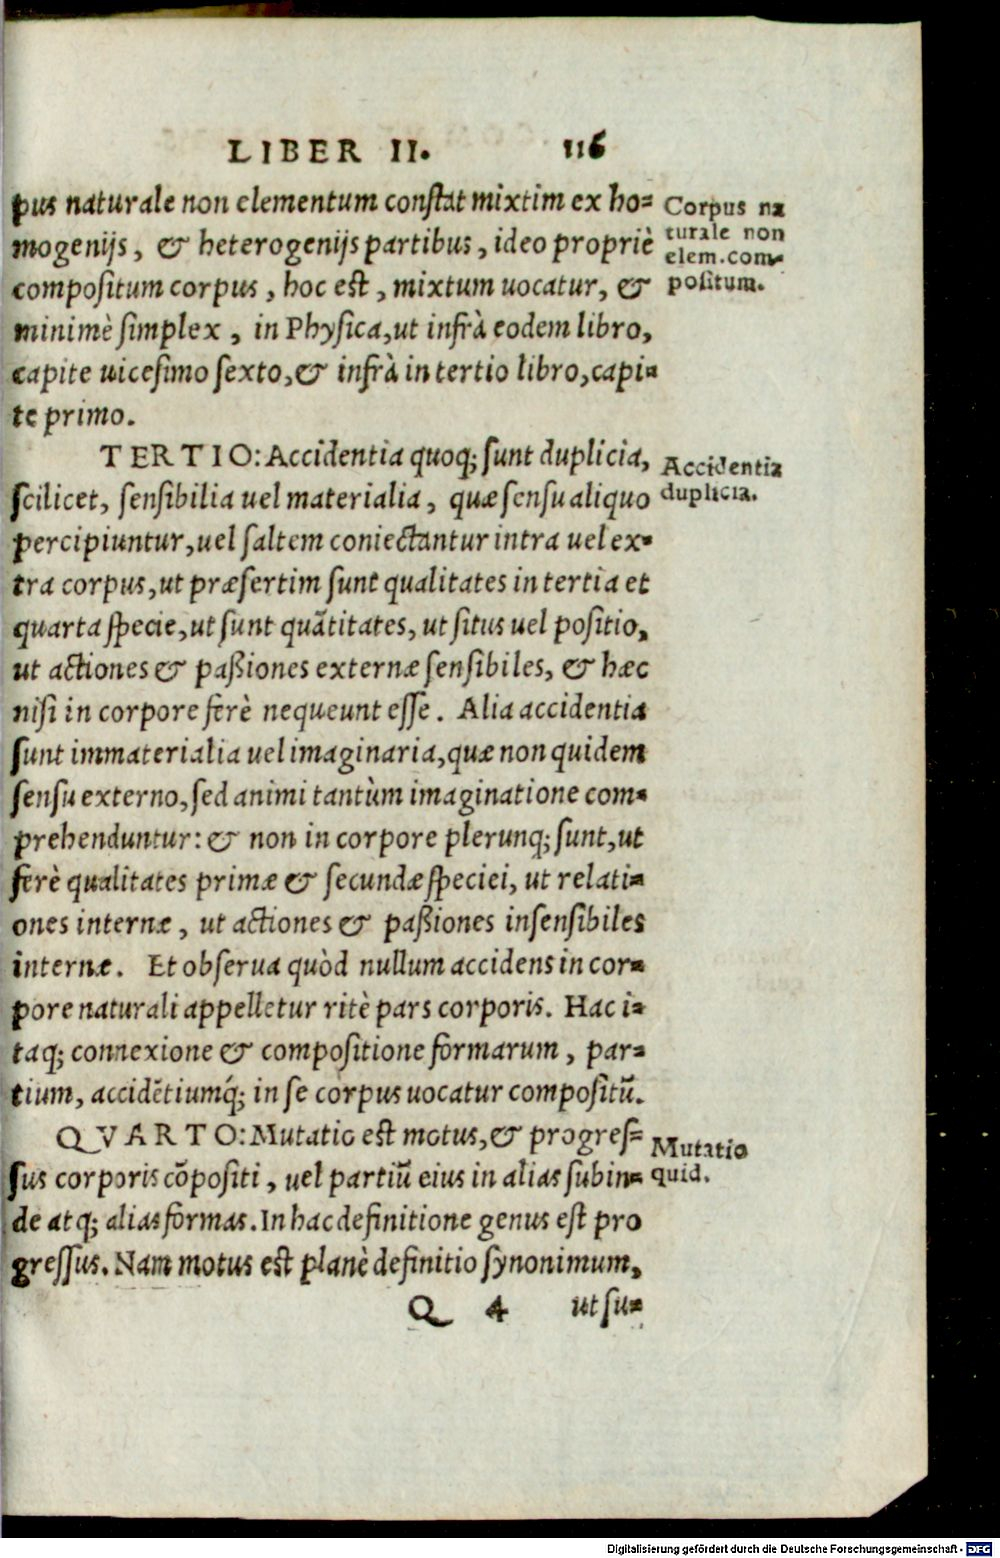 LIBER II. 116
pus naturale non elementum constat mixtim ex ho=
mogenijs, & heterogenijs partibus, ideo propriè
compositum corpus, hoc est, mixtum uocatur, &
minimè simplex, in Physica, ut infrà eodem libro,
capite uicesimo sexto, & infrà in tertio libro, capi=
te primo.
Corpus na
turale non
elem. com=
positum.
TERTIO: Accidentia quoq; sunt duplicia,
scilicet, sensibilia uel materialia, quæ sensu aliquo
percipiuntur, uel saltem coniectantur intra uel ex=
tra corpus, ut præsertim sunt qualitates in tertia et
quarta specie, ut sunt quãtitates, ut situs uel positio,
ut actiones & paßiones externæ sensibiles, & hæc
nisi in corpore ferè nequeunt esse. Alia accidentia
sunt immaterialia uel imaginaria, quæ non quidem
sensu externo, sed animi tantùm imaginatione com=
prehenduntur: & non in corpore plerunq; sunt, ut
ferè qualitates primæ & secundæ speciei, ut relati=
ones internæ, ut actiones & paßiones insensibiles
internæ. Et obserua quòd nullum accidens in cor=
pore naturali appelletur ritè pars corporis. Hac i=
taq; connexione & compositione formarum, par=
tium, accidẽtiumq́; in se corpus uocatur compositũ.
Accidentia
duplicia.
QVARTO: Mutatio est motus, & progres=
sus corporis cõpositi, uel partiũ eius in alias subin=
de atq; alias formas. In hac definitione genus est pro
gressus. Nam motus est planè definitio synonimum,
Mutatio
quid.
Q 4 ut su=
Digitalisierung gefördert durch die Deutsche Forschungsgemeinschaft - DFG